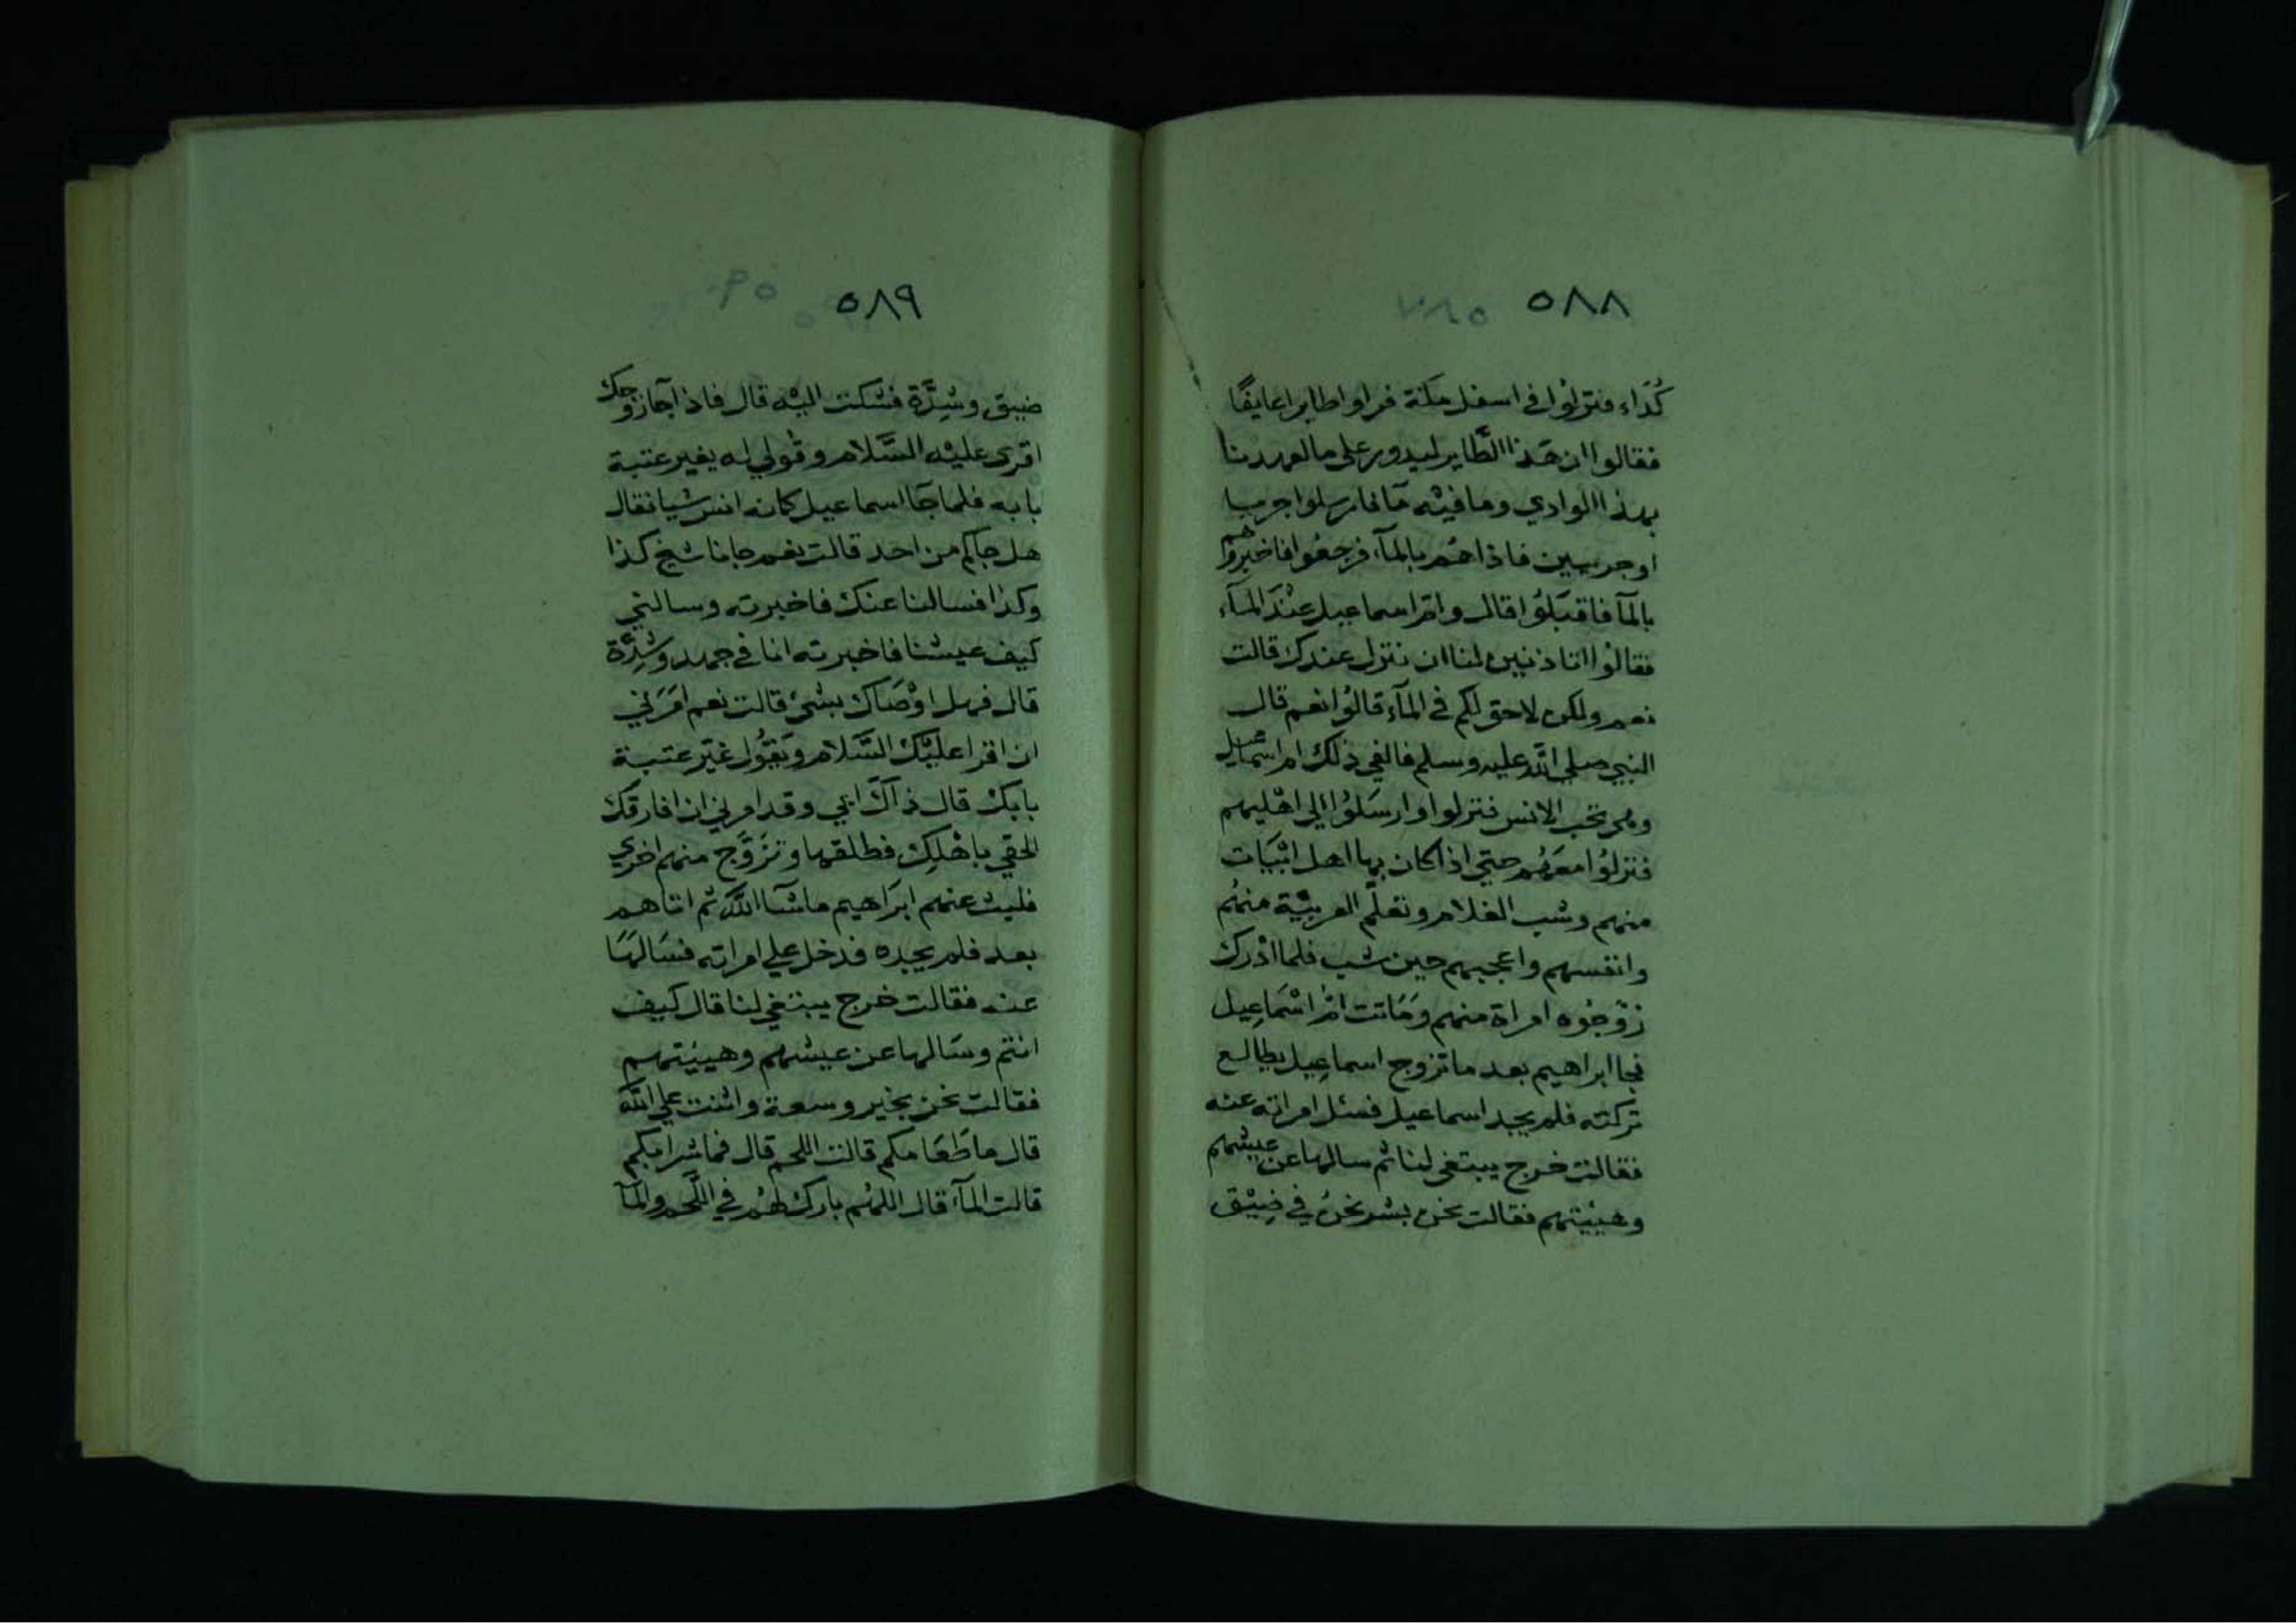 ٥٨٨
كُدَاء فنزلوا في اسفل مكة فراوا طايرا عايفًا
فقالوا ان هذا الطَّاير ليدور علي ما لعهدنا
بهذا الوادي وما فيه مآ فارسلوا جريا
او جريين فاذا هُم بالمآء فرجعُوا فاخبروهم
بالمآ فاقبَلوُا قال وام اسماعيل عنْدَ المآء
فقالوُا اتاذنين لنا ان ننزل عندك قالت
نعم ولكن لا حق لكم في المآء قالوُا نعم قال
النبي صلي اللّه عليه وسلم فالفي ذلك ام اسماعيل
وهي تحب الانس فنزلوا وارسَلوُا الي اهْليهم
فنزلوُا معَهُم حتي اذا كان بها اهل ابْيَات
منهم وشب الغلام وتعلّم العربيّة منهُم
وانفسهم واعجبهم حين شب فلما ادْرك
زوّجُوه امراة منهم ومَاتت امّ اسْمَاعِيل
فجا ابراهيم بعد ما تزوج اسماعِيل يطالع
تركته فلم يجد اسماعيل فسئل امراته عنه
فقالت خرج يبتغي لنا ثم سالها عن عيشهم
وهيئتهم فقالت نحن بشر نحنُ في ضِيْق
٥٨٩
ضيق وشِدَّة فشكت اليْه قال فاذا جآ زوجك
اقرى عليْه السَّلام وقُولي له يغير عتبة
بابه فلما جآ اسماعيل كانه انس شيا فقال
هل جاكم من احد قالت نعم جانا شيخ كذا
وكذا فسالنا عنك فاخبرته وسالني
كيف عيشنا فاخبرته انا في جهد وشِدَّة
قال فهل اوْصَاك بشئ قالت نعم امَرَني
ان اقرا عليْك السَّلام ويَقوُل غيّر عتبة
بابك قال ذآك ابي وقد امرني ان افارقك
الحقي باهْلِك فطلقها وتزَوَّج منهم اخري
فلبث عنهم ابرَاهيم ما شآ اللّه ثم اتاهم
بعد فلم يجده فدخل علي امراته فسَالهَا
عنه فقالت خرج يبتغي لنا قال كيف
انتم وسَالها عن عيشهم وهيئتهم
فقالت نحن بخير وسعة واثنت علي اللّه
قال ما طَعَامكم قالت اللحم قال فما شرابكم
قالت المآء قال اللهُم بارك لهُم في اللَّحم والمآ